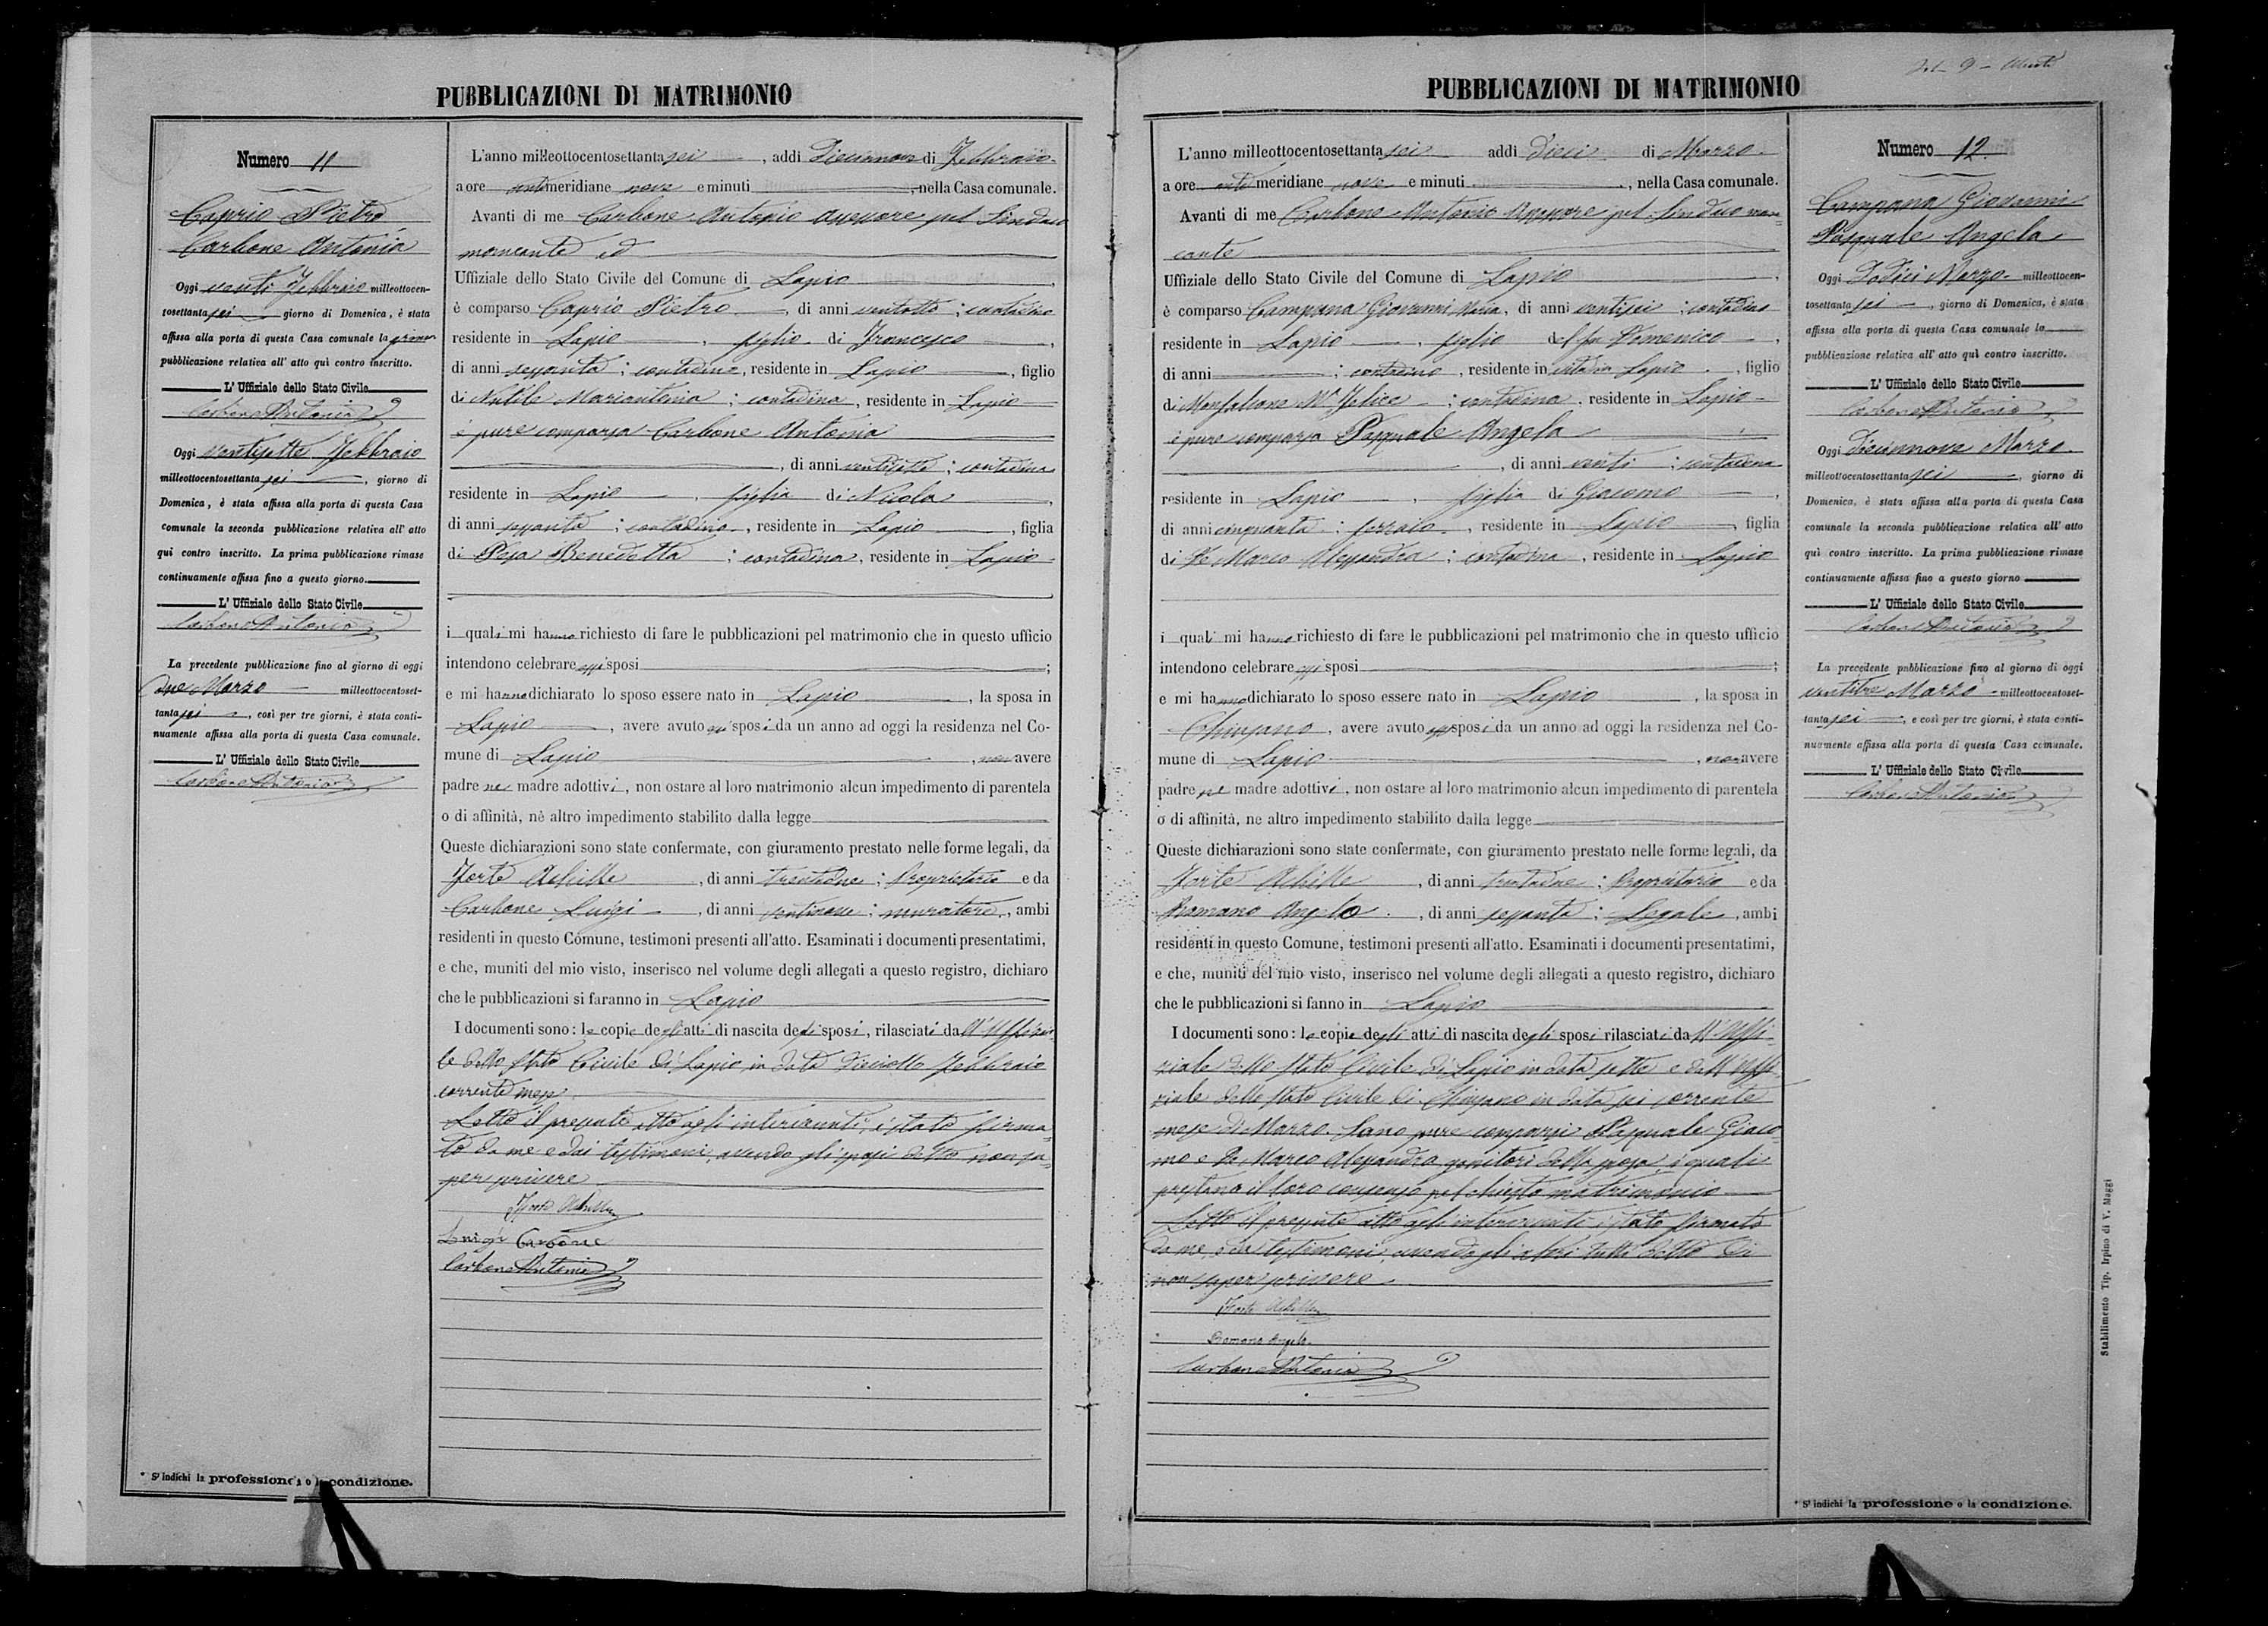 PUBBLICAZIONI DI MATRIMONIO
Numero 11
Caprio Pietro
Carbone Antonia
Oggi venti Febbraio milleottocen-
tosettantasei giorno di Domenica, è stata
affissa alla porta di questa Casa comunale la prima
pubblicazione relativa all' atto quì contro inscritto.
L' Uffiziale dello Stato Civile
Carbone Antonio
Oggi ventisette Febbraio
milleottocentosettantasei, giorno di
Domenica, è stata affissa alla porta di questa Casa
comunale la seconda pubblicazione relativa all' atto
qui contro inscritto. La prima pubblicazione rimase
continuamente affissa fino a questo giorno.
L' Uffiziale dello Stato Civile
Carbone Antonio
La precedente pubblicazione fino al giorno di oggi
due Marzo milleottocentoset-
tantasei, così per tre giorni, è stata conti-
nuamente affissa alla porta di questa Casa comunale.
L' Uffiziale dello Stato Civile
Carbone Antonio
* S' indichi la professione o la condizione.
L'anno milleottocentosettantasei, addì Diciannove di Febbraio
a ore antimeridiane nove e minuti , nella Casa comunale.
Avanti di me Carbone Antonio Assessore pel Sindaco
mancante ed
Uffiziale dello Stato Civile del Comune di Lapio,
è comparso Caprio Pietro, di anni ventotto; contadino
residente in Lapio, figlio di Francesco,
di anni sessanta; contadino, residente in Lapio, figlio
di Nutile Mariantonia; contadina, residente in Lapio
è pure comparsa Carbone Antonia
, di anni ventisette; contadina
residente in Lapio, figlia di Nicola,
di anni sessanta; contadino, residente in Lapio, figlia
di Pesa Benedetta; contadina, residente in Lapio
i quali mi hanno richiesto di fare le pubblicazioni pel matrimonio che in questo ufficio
intendono celebrare essi sposi;
e mi hanno dichiarato lo sposo essere nato in Lapio, la sposa in
Lapio, avere avuto essi sposi da un anno ad oggi la residenza nel Co-
mune di Lapio, non avere
padre nè madre adottivi, non ostare al loro matrimonio alcun impedimento di parentela
o di affinità, nè altro impedimento stabilito dalla legge
Queste dichiarazioni sono state confermate, con giuramento prestato nelle forme legali, da
Forte Achille, di anni trentadue; Proprietario e da
Carbone Luigi, di anni ventinove; muratore, ambi
residenti in questo Comune, testimoni presenti all'atto. Esaminati i documenti presentatimi,
e che, muniti del mio visto, inserisco nel volume degli allegati a questo registro, dichiaro
che le pubblicazioni si faranno in Lapio
I documenti sono: le copie degli atti di nascita degli sposi, rilasciati dall'Uffizia-
le dello Stato Civile di Lapio in data diciotto Febbraio
corrente mese
Letto il presente atto agli intervenuti, è stato firma-
to da me e dai testimoni, avendo gli sposi detto non sa-
per scrivere
Forte Achille
Luigi Carbone
Carbone Antonio
PUBBLICAZIONI DI MATRIMONIO
L'anno milleottocentosettantasei addì dieci di Marzo
a ore antimeridiane nove e minuti , nella Casa comunale.
Avanti di me Carbone Antonio Assessore pel Sindaco man-
cante
Uffiziale dello Stato Civile del Comune di Lapio,
è comparso Campana Giovanni Maria, di anni ventisei; contadino
residente in Lapio, figlio del fu Domenico,
di anni ; contadino, residente in vita in Lapio, figlio
di Monfalcone Ma Felice; contadina, residente in Lapio
è pure comparsa Pasquale Angela
, di anni venti; contadina
residente in Lapio, figlia di Giacomo,
di anni cinquanta; ferraio, residente in Lapio, figlia
di De Marco Alessandra; contadina, residente in Lapio
i quali mi hanno richiesto di fare le pubblicazioni pel matrimonio che in questo ufficio
intendono celebrare essi sposi;
e mi hanno dichiarato lo sposo essere nato in Lapio, la sposa in
Chiusano, avere avuto essi sposi da un anno ad oggi la residenza nel Co-
mune di Lapio, non avere
padre nè madre adottivi, non ostare al loro matrimonio alcun impedimento di parentela
o di affinità, ne altro impedimento stabilito dalla legge
Queste dichiarazioni sono state confermate, con giuramento prestato nelle forme legali, da
Forte Achille, di anni trentadue; Proprietario e da
Romano Angelo, di anni sessanta; Legale, ambi
residenti in questo Comune, testimoni presenti all'atto. Esaminati i documenti presentatimi,
e che, muniti del mio visto, inserisco nel volume degli allegati a questo registro, dichiaro
che le pubblicazioni si fanno in Lapio
I documenti sono: le copie degli atti di nascita degli sposi rilasciati dall'Uffi-
ziale dello Stato Civile di Lapio in data sette e dall'Uffi-
ziale dello Stato Civile di Chiusano in data sei corrente
mese di Marzo. Sono pure comparsi Pasquale Giaco-
mo e De Marco Alessandra genitori della sposa, i quali
prestano il loro consenso pel chiesto matrimonio
Letto il presente atto agli intervenuti è stato firmato
da me e dai testimoni, avendo gli altri tutti detto di
non saper scrivere
Forte Achille
Romano Angelo
Carbone Antonio
Numero 12
Campana Giovanni
Pasquale Angela
Oggi Dodici Marzo milleottocen-
tosettantasei, giorno di Domenica, è stata
affissa alla porta di questa Casa comunale la
pubblicazione relativa all' atto quì contro inscritto.
L' Uffiziale dello Stato Civile
Carbone Antonio
Oggi Diciannove Marzo
milleottocentosettantasei, giorno di
Domenica, è stata affissa alla porta di questa Casa
comunale la seconda pubblicazione relativa all' atto
quì contro inscritto. La prima pubblicazione rimase
continuamente affissa fino a questo giorno
L' Uffiziale dello Stato Civile
Carbone Antonio
La precedente pubblicazione fino al giorno di oggi
ventitre Marzo milleottocentoset-
tantasei, e così per tre giorni, è stata conti-
nuamente affissa alla porta di questa Casa comunale.
L' Uffiziale dello Stato Civile
Carbone Antonio
* S' indichi la professione o la condizione.
Stabilimento Tip. Irpino di V. Maggi